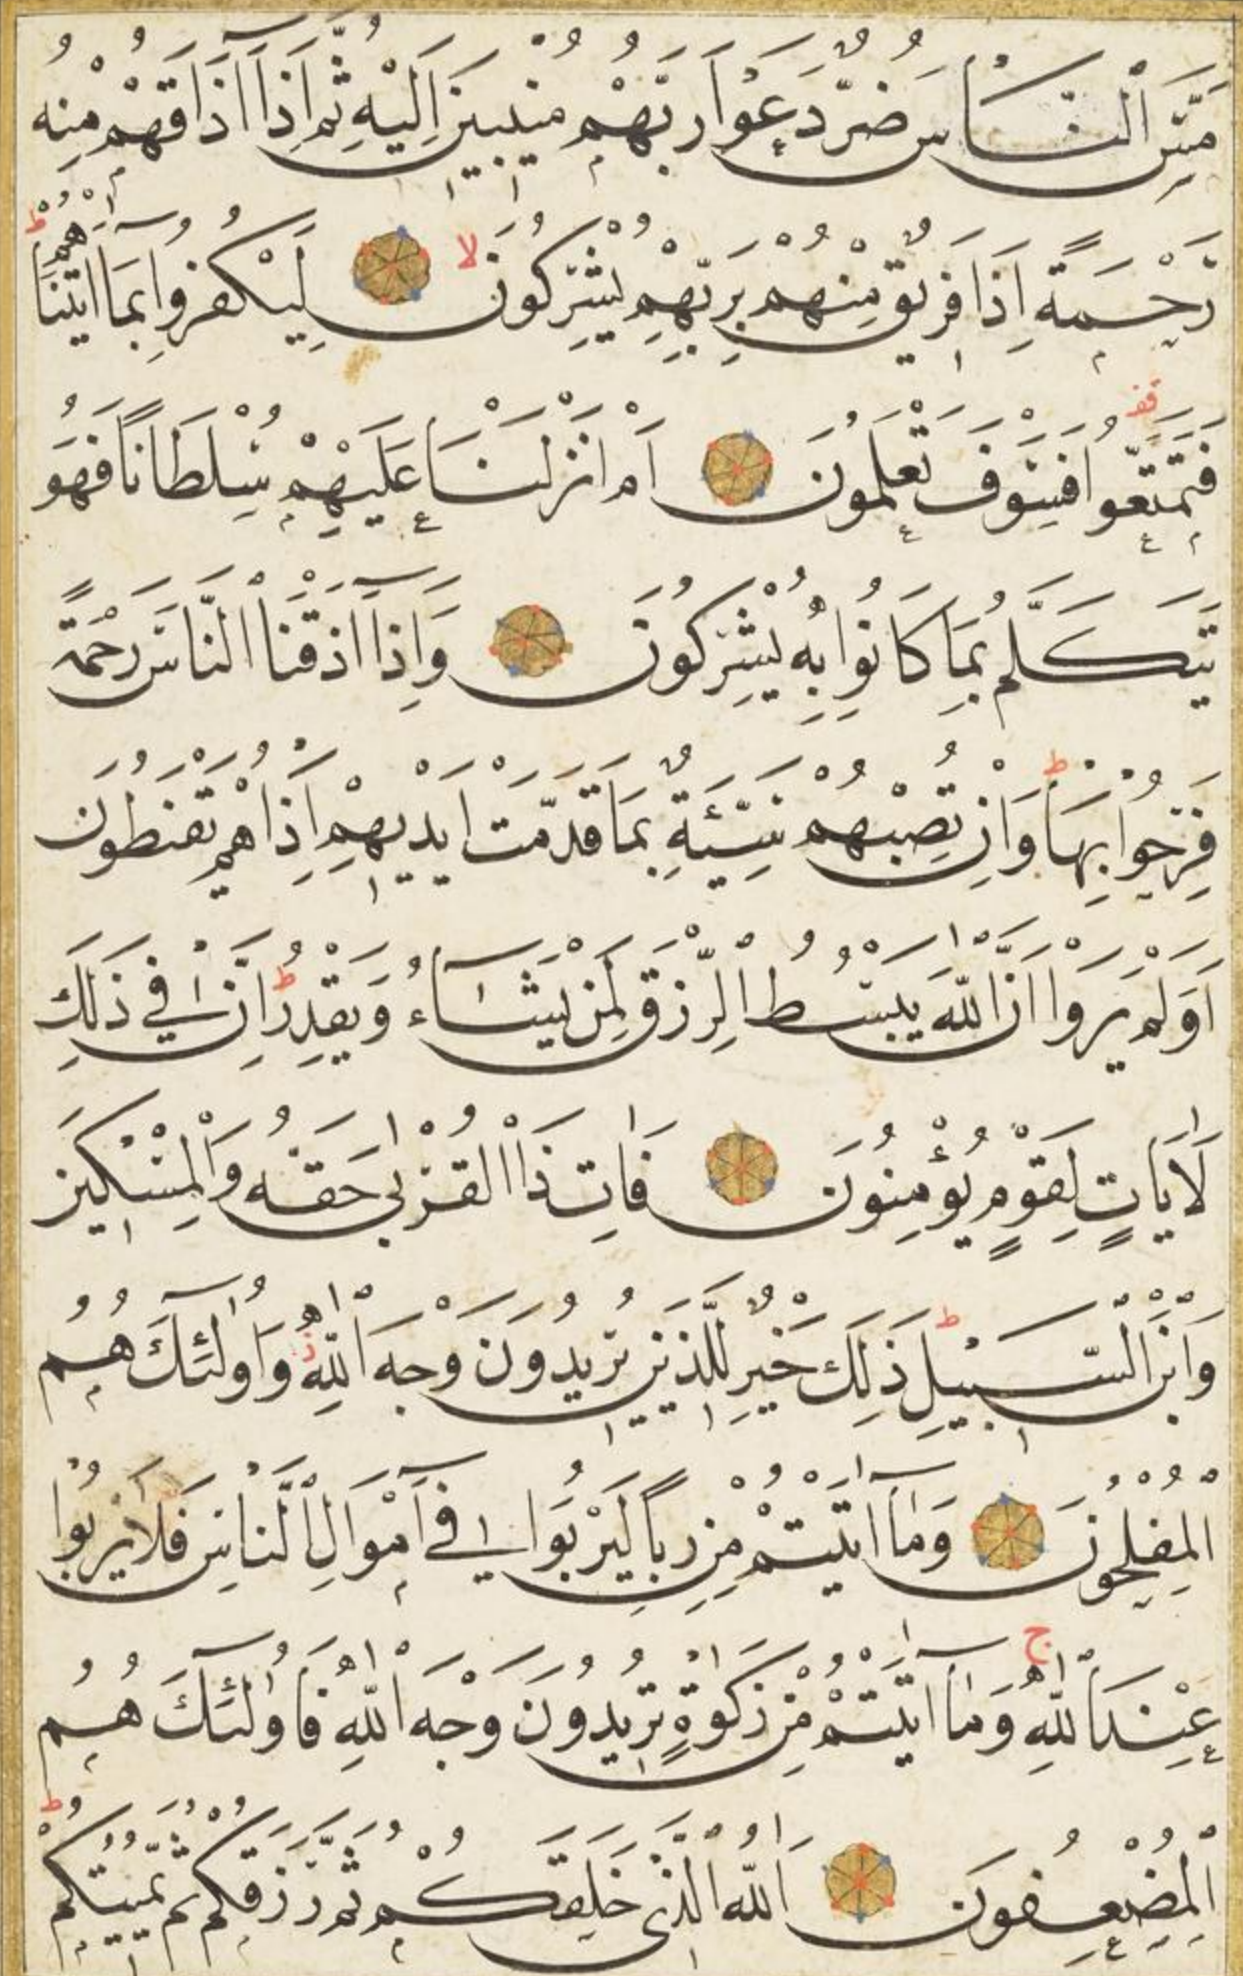 مَسَّ النَّاسَ ضُرٌّ دَعَوْا رَبَّهُمْ مُنِيبِينَ اِلَيْهِ ثُمَّ اِذَا اَذَاقَهُمْ مِنْهُ
رَحْمَةً اِذَا فَرِيقٌ مِنْهُمْ بِرَبِّهِمْ يُشْرِكُونَ لا لِيَكْفُرُوا بِمَا اٰتَيْنَاهُمْ ط
فَتَمَتَّعُوا قف فَسَوْفَ تَعْلَمُونَ اَمْ اَنْزَلْنَا عَلَيْهِمْ سُلْطَانًا فَهُوَ
يَتَكَلَّمُ بِمَا كَانُوا بِهِ يُشْرِكُونَ وَاِذَا اَذَقْنَا النَّاسَ رَحْمَةً
فَرِحُوا بِهَا ط وَاِنْ تُصِبْهُمْ سَيِّئَةٌ بِمَا قَدَّمَتْ اَيْدِيهِمْ اِذَا هُمْ يَقْنَطُونَ
اَوَلَمْ يَرَوْا اَنَّ اللّٰهَ يَبْسُطُ الرِّزْقَ لِمَنْ يَشَاءُ وَيَقْدِرُ ط اِنَّ فِي ذَلِكَ
لَاٰيَاتٍ لِقَوْمٍ يُؤْمِنُونَ فَاٰتِ ذَا الْقُرْبٰى حَقَّهُ وَالْمِسْكِينَ
وَابْنَ السَّبِيلِ ط ذَلِكَ خَيْرٌ لِلَّذِينَ يُرِيدُونَ وَجْهَ اللّٰهِ ز وَاُولٰئِكَ هُمُ
الْمُفْلِحُونَ وَمَا اٰتَيْتُمْ مِنْ رِبًا لِيَرْبُوَا فِي اَمْوَالِ النَّاسِ فَلَا يَرْبُوا
عِنْدَ اللّٰهِ ج وَمَا اٰتَيْتُمْ مِنْ زَكٰوةٍ تُرِيدُونَ وَجْهَ اللّٰهِ فَاُولٰئِكَ هُمُ
الْمُضْعِفُونَ اَللّٰهُ الَّذِي خَلَقَكُمْ ثُمَّ رَزَقَكُمْ ثُمَّ يُمِيتُكُمْ ط